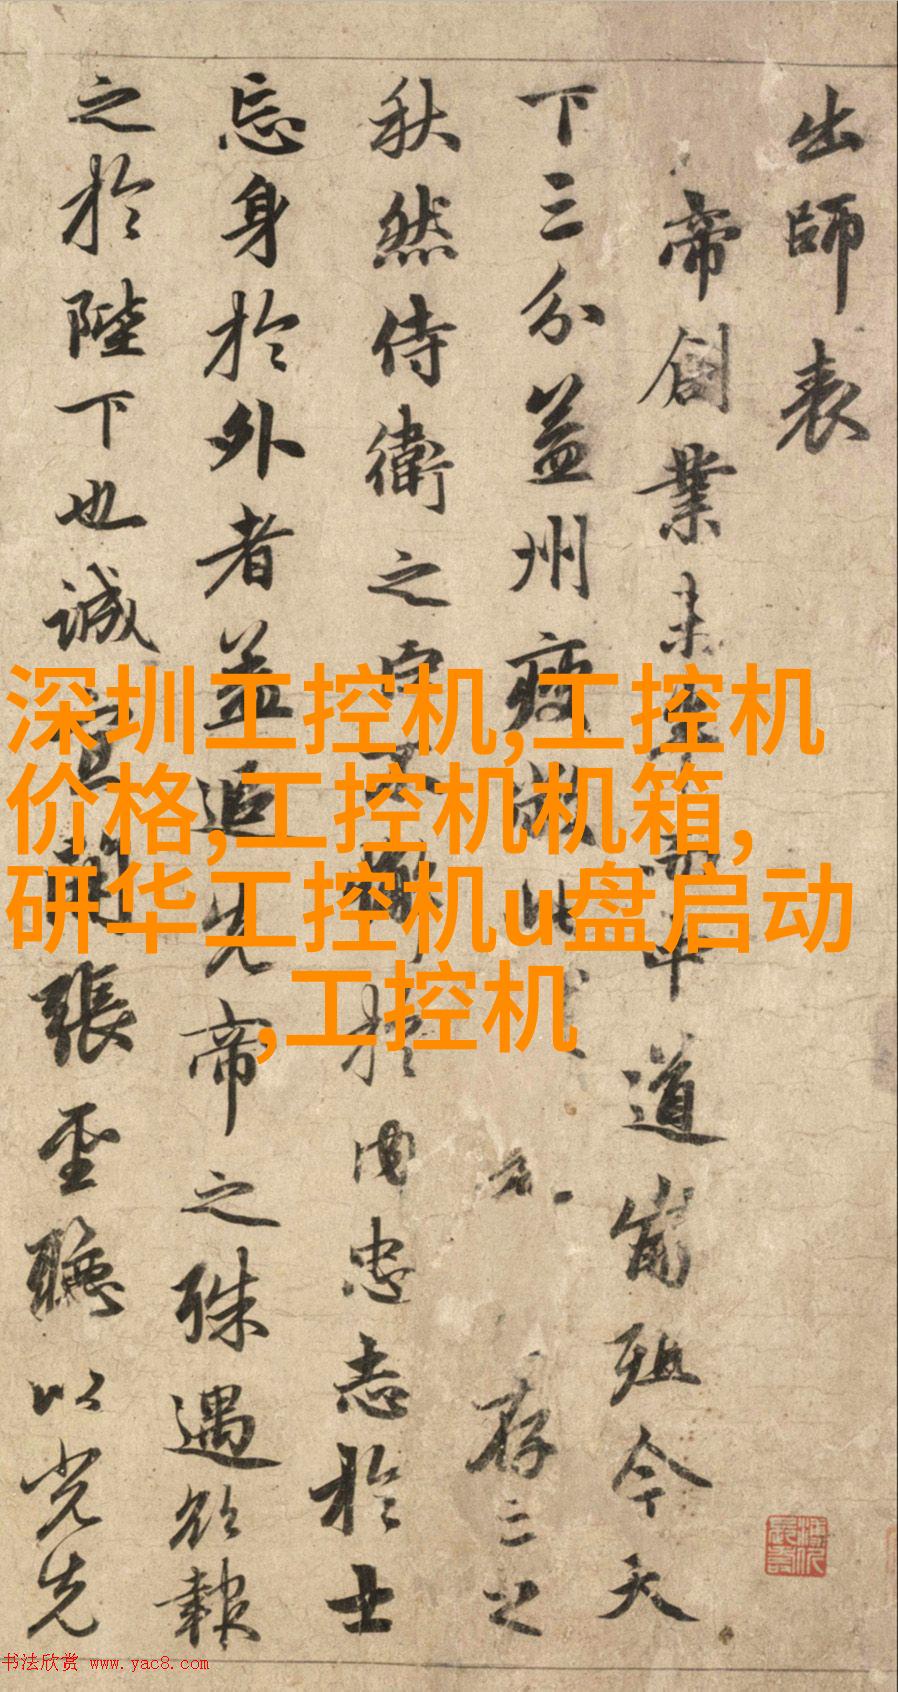 出師表
帝創業未半而中道崩殂今天
下三分益州疲敝此存亡之
秋然侍衛之臣不懈於内忠志於士
忘身於外者益追先帝之殊遇欲報
之於陛下也誠宜開張聖聽以光先
深圳工控机,工控机
价格,工控机机箱,
研华工控机u盘启动
,工控机
书法欣赏 www.yac8.com